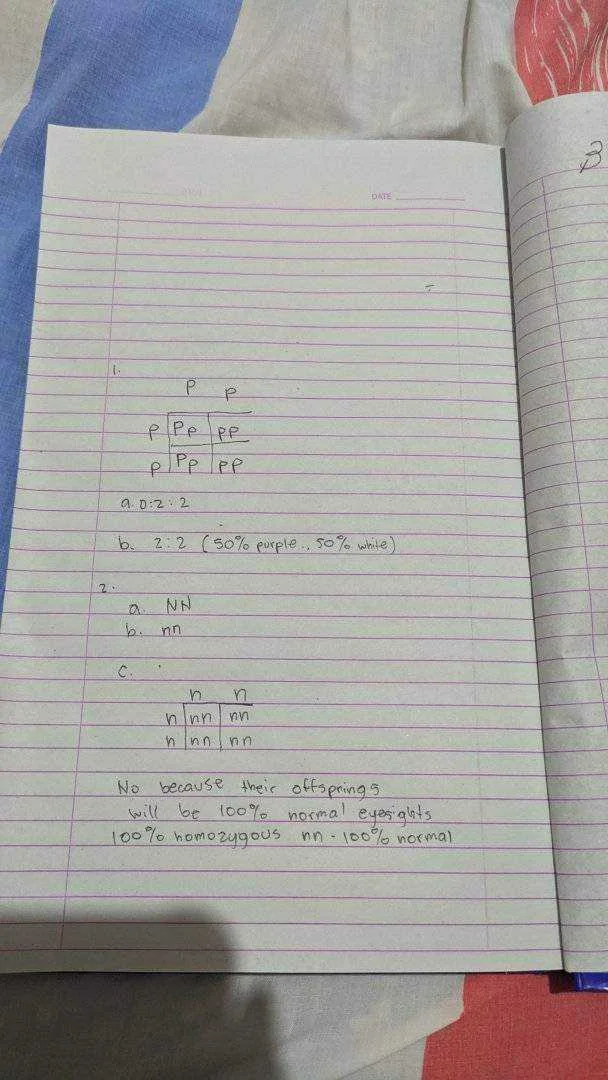 DATE
3
1.
P p
p Pp pp
p Pp pp
a. 0:2:2
b. 2:2 (50% purple, 50% white)
2.
a. NN
b. nn
c.
n n
n nn nn
n nn nn
No because their offsprings
will be 100% normal eyesights
100% homozygous nn - 100% normal